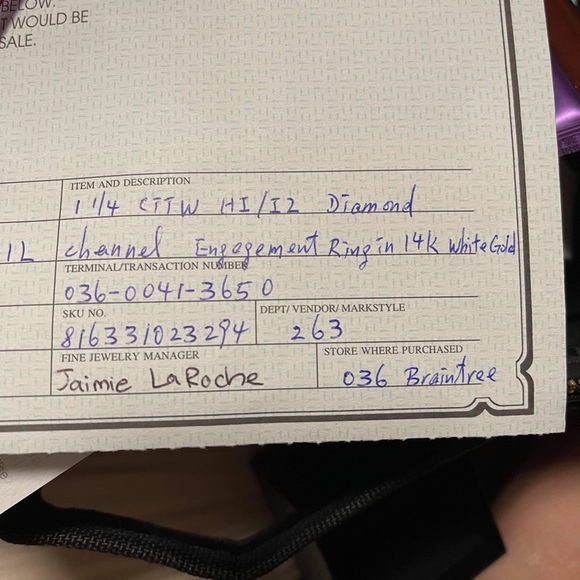 BELOW.
T WOULD BE
SALE.
ITEM AND DESCRIPTION
1 1/4 CTTW HI/I2 Diamond
1L channel Engagement Ring in 14k White Gold
TERMINAL/TRANSACTION NUMBER
036-0041-3650
SKU NO. DEPT/ VENDOR/ MARKSTYLE
816331023294 263
FINE JEWELRY MANAGER STORE WHERE PURCHASED
Jaimie LaRoche 036 Braintree